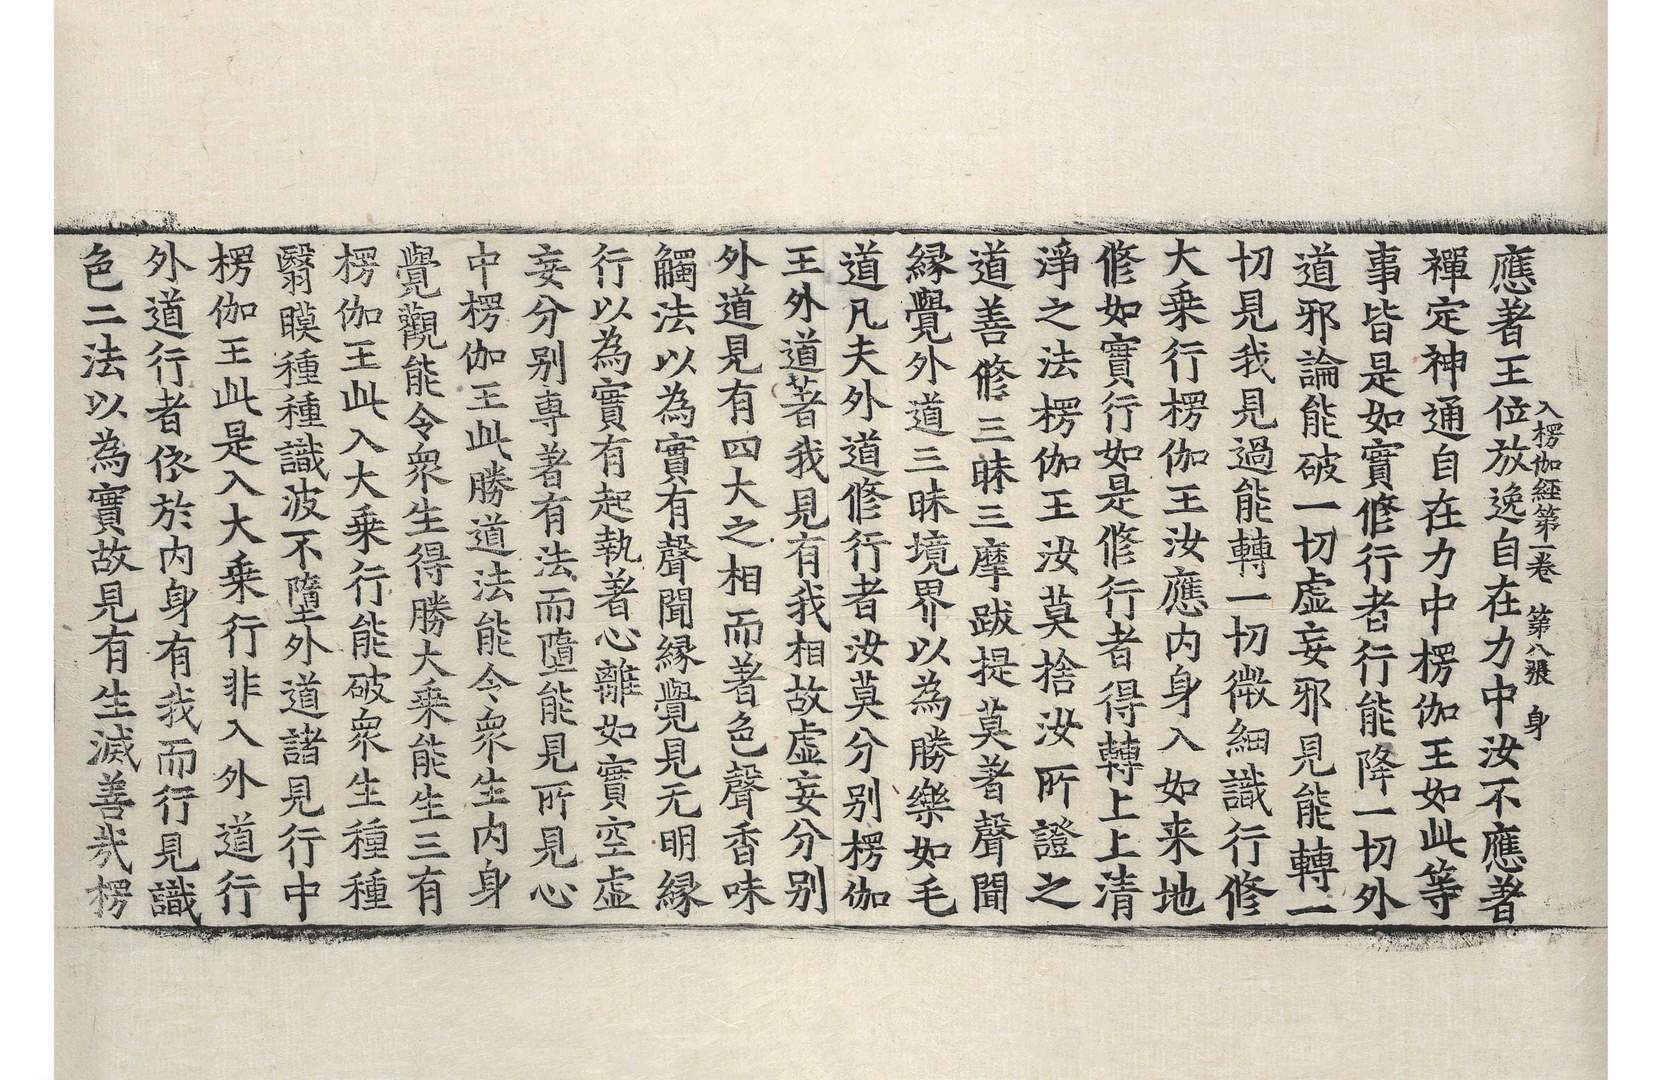 入楞伽經第一卷　第八張　身
應著王位放逸自在力中汝不應著
禪定神通自在力中楞伽王如此等
事皆是如實修行者行能降一切外
道邪論能破一切虛妄邪見能轉一
切見我見過能轉一切微細識行修
大乗行楞伽王汝應内身入如来地
修如實行如是修行者得轉上上清
淨之法楞伽王汝莫捨汝所證之
道善修三昧三摩跋提莫著聲聞
縁覺外道三昧境界以為勝樂如毛
道凡夫外道修行者汝莫分別楞伽
王外道著我見有我相故虛妄分別
外道見有四大之相而著色聲香味
觸法以為實有聲聞縁覺見无明縁
行以為實有起執著心離如實空虛
妄分別専著有法而墮能見所見心
中楞伽王此勝道法能令衆生内身
覺觀能令衆生得勝大乗能生三有
楞伽王此入大乗行能破衆生種種
翳瞙種種識波不墮外道諸見行中
楞伽王此是入大乗行非入外道行
外道行者依於内身有我而行見識
色二法以為實故見有生滅善哉楞